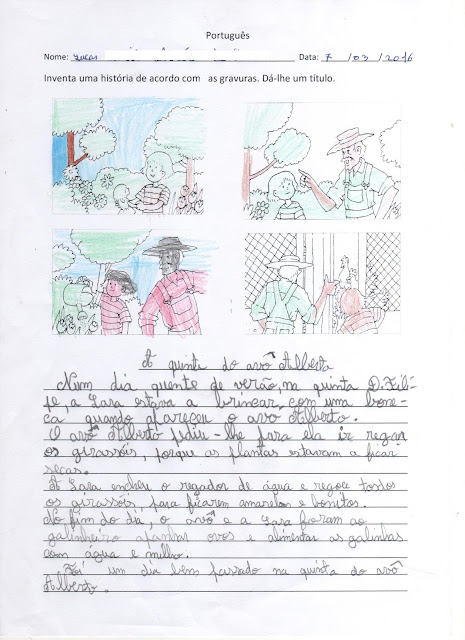 Português
Nome: Lucas
Data: 7 /03 /2016
Inventa uma história de acordo com as gravuras. Dá-lhe um título.
A quinta do avô Alberto
Num dia quente de verão, na quinta D. Fili-
pe, a Sara estava a brincar com uma bone-
ca quando apareceu o avô Alberto.
O avô Alberto pediu-lhe para ela ir regar
os girassóis, porque as plantas estavam a ficar
secas.
A Sara encheu o regador de água e regou todos
os girassóis, para ficarem amarelos e bonitos.
No fim do dia, o avô e a Sara foram ao
galinheiro apanhar ovos e alimentar as galinhas
com água e milho.
Foi um dia bem passado na quinta do avô
Alberto.